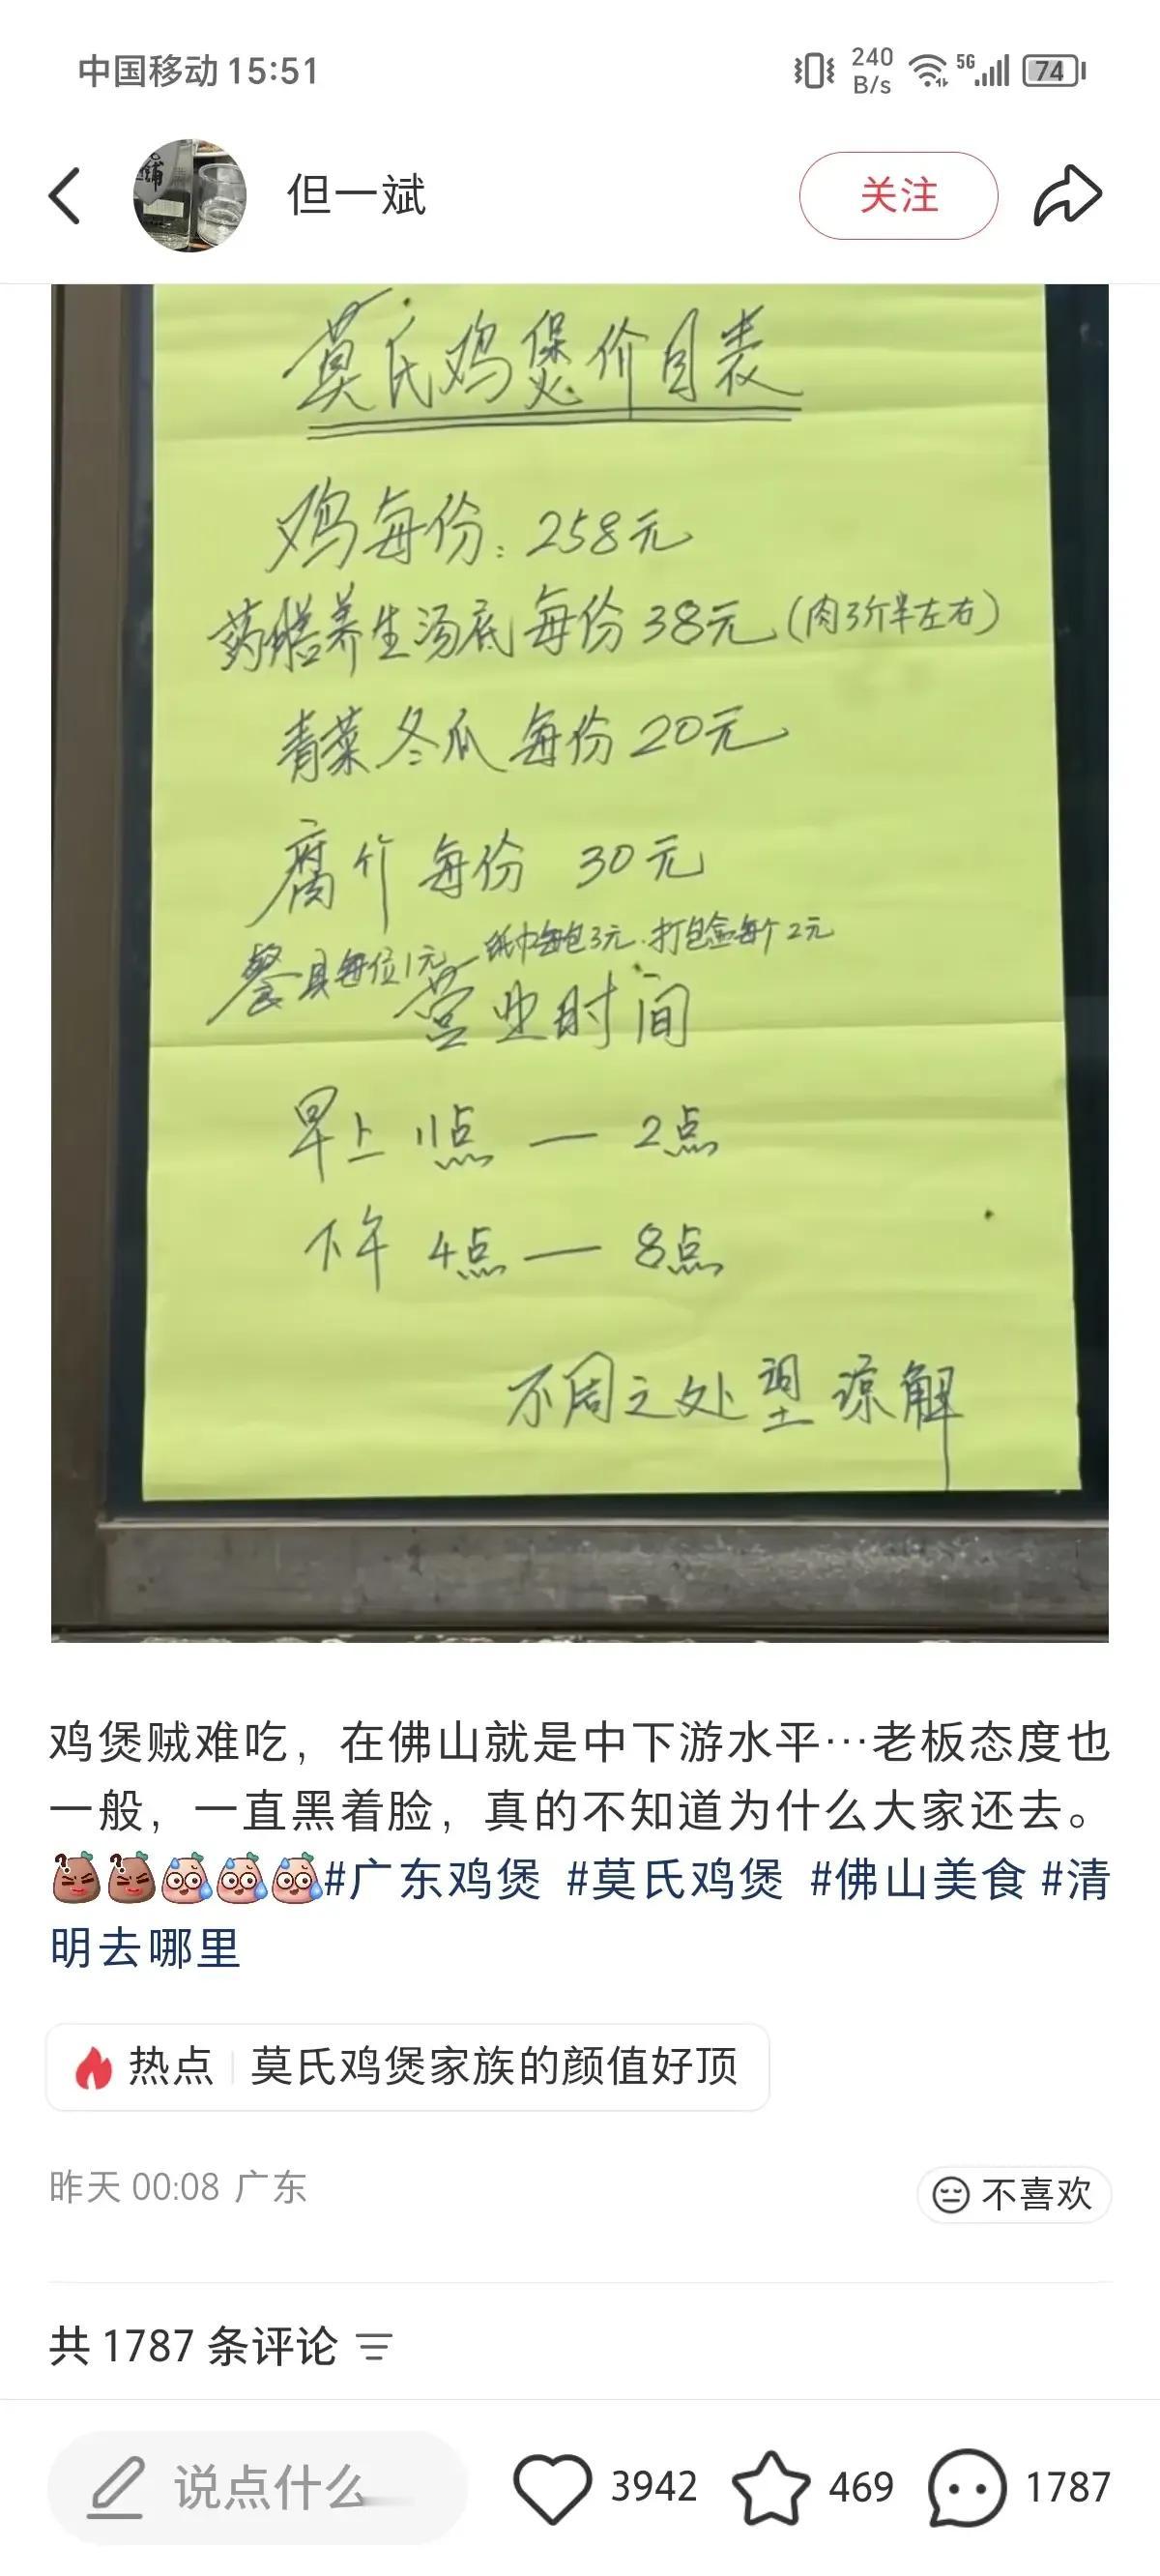 中国移动 15:51
240 B/s
5G
74
但一斌
关注
莫氏鸡煲价目表
鸡每份：258元
药膳养生汤底每份38元（肉3斤半左右）
青菜冬瓜每份20元
腐竹每份 30元
餐具每位1元 纸巾每包3元.打包盒每个2元
营业时间
早上 11点 — 2点
下午 4点 — 8点
不周之处望谅解
鸡煲贼难吃，在佛山就是中下游水平…老板态度也
一般，一直黑着脸，真的不知道为什么大家还去。
#广东鸡煲 #莫氏鸡煲 #佛山美食 #清
明去哪里
热点 | 莫氏鸡煲家族的颜值好顶
昨天 00:08 广东
不喜欢
共 1787 条评论
说点什么
3942
469
1787